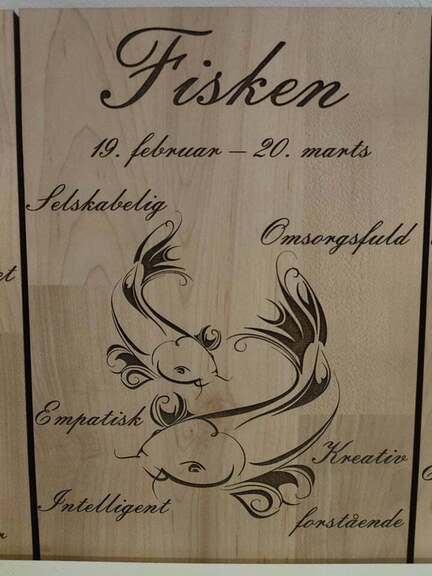 Fisken
19. februar – 20. marts
Selskabelig
Omsorgsfuld
Empatisk
Kreativ
Intelligent
forstående